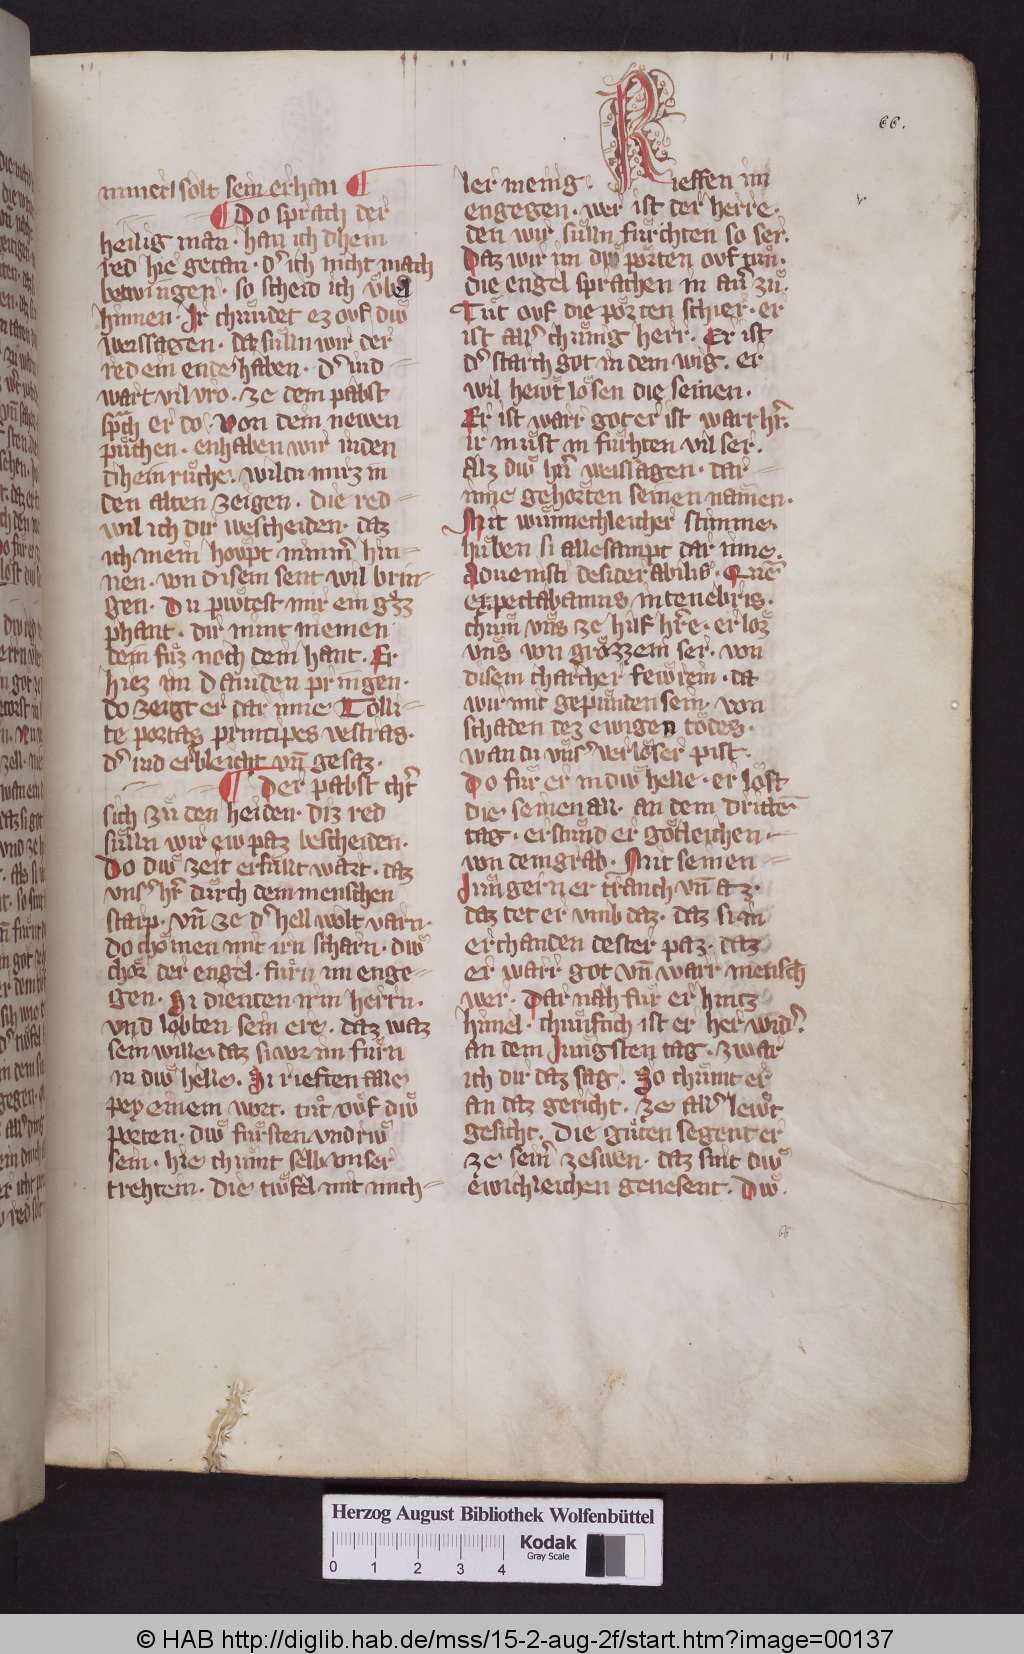 66.
nimerl solt sein erhan ¶
¶ Do sprach der
heilig man · han ich dhein
red hie getan · d͛ ich nicht mach
betwingen · so scheid ich vbel
hinnen · Ir chundet ez ovf diw
weissagen · da suͤlln wir der
red ein ende haben · d͛ iud
wart vil vro · ze dem pabst
sp̃ch er do · Von dem newen
puͤchen · enhaben wir iuden
dhein ruͤche · wildu mirz in
den alten zeigen · die red
wil ich dir wescheiden · daz
ich mein hovpt nimm͛ hin
nen · von disem sent wil brin
gen · Du piwtest mir ein
phant · dir nimt niemen
dem fuͤz noch dem hant · Er
hiez im Dauiden pringen ·
do zeigt er dar inne Tolli
te portas principes vestras ·
d͛ iud erbleicht vñ gesaz ·
¶ Der pabst chert
sich zuͤ den heiden · diz red
suͤlln wir ew paz bescheiden ·
Do diw zeit erfullt wart · daz
vns͛ hr̃ durch dem menschen
starp · vñ ze d͛ hell wolt varn ·
do chomen mit irn scharn · diw
choͤr der engel · fuͤrn im enge
gen · Si dienten irm herrn ·
vnd lobten sein ere · daz waz
sein wille · daz si vor im fuͤrn
in diw helle · Si rieften alle
pey einem wort · tuͤt ovf diw
porten · diw fursten vnd riw
sein · hie chumt selb vnser
trehtein · die tiwfel mit mich
ler menig · Rieffen im
engegen · wer ist der herre ·
den wir suͤlln furchten so ser ·
Daz wir im diw porten ovf tuͤn ·
die engel sprachen in av͛ zuͤ ·
Tuͤt ovf die porten schier · er
ist all͛ chunig herr · Er ist
d͛ starch got in dem wig · er
wil hewt loͤsen die seinen ·
Er ist warr got er ist warr hr̃ ·
ir muͤst in furhten vil ser ·
Alz diw hr̃ weissagen · dar
inne gehorten seinen namen ·
Mit wunnechleicher stimme
huͤben si allesampt dar inne ·
Aduenisti desiderabilis · Quē
expectabamus in tenebris ·
chum vns ze hilf hr̃e · erloz
vns von grozzem ser · von
disem charcher fewrein · da
wir mit gepunden sein · von
schaden dez ewigen todes ·
wan du vns͛ verloͤser pist ·
Do fuͤr er in diw helle · er loͤst
die seinen all · an dem dritten
tag · erstund er gotleichen
von dem grab · Mit seinen
Jungern er tranch vñ az ·
daz tet er vmb daz · daz si in
erchanden dester paz · daz
er warr got vñ warr mensch
wer · Dar nah fuͤr er hintz
himel · chunftich ist er her wid͛ ·
an dem Jungsten tag · zwar
ich dir daz sag · So chumt er
an daz gericht · ze all͛ lewt
gesicht · Die guͤten segent er
ze sein͛ zeswen · daz sint diw
ewichleichen genesent · Diw
66
Herzog August Bibliothek Wolfenbüttel
0 1 2 3 4
Kodak
Gray Scale
© HAB http://diglib.hab.de/mss/15-2-aug-2f/start.htm?image=00137